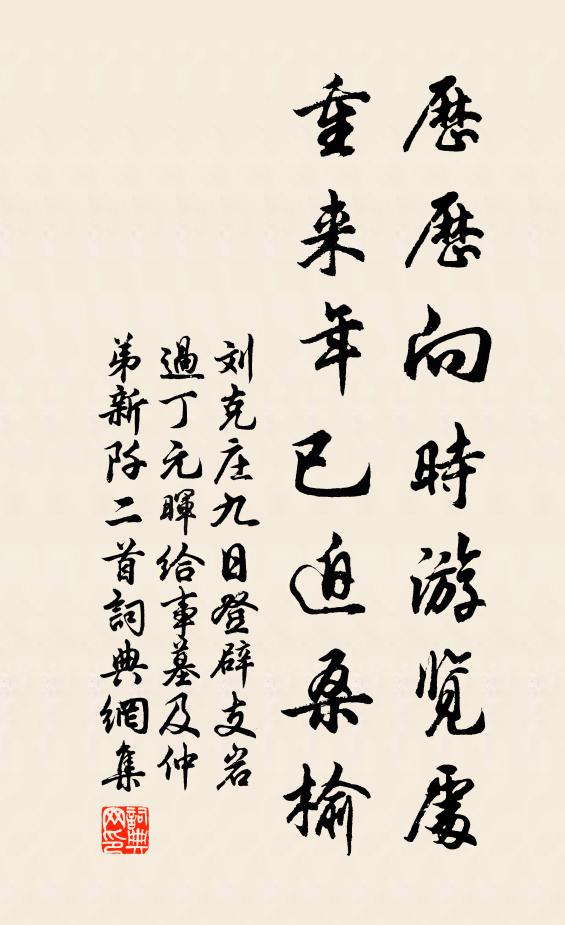 歷歷向時游覽處
重来年已迫桑榆
刘克庄九日登辟支岩
過丁元暉給事墓及仲
弟新阡二首詞典網集
詞典网印